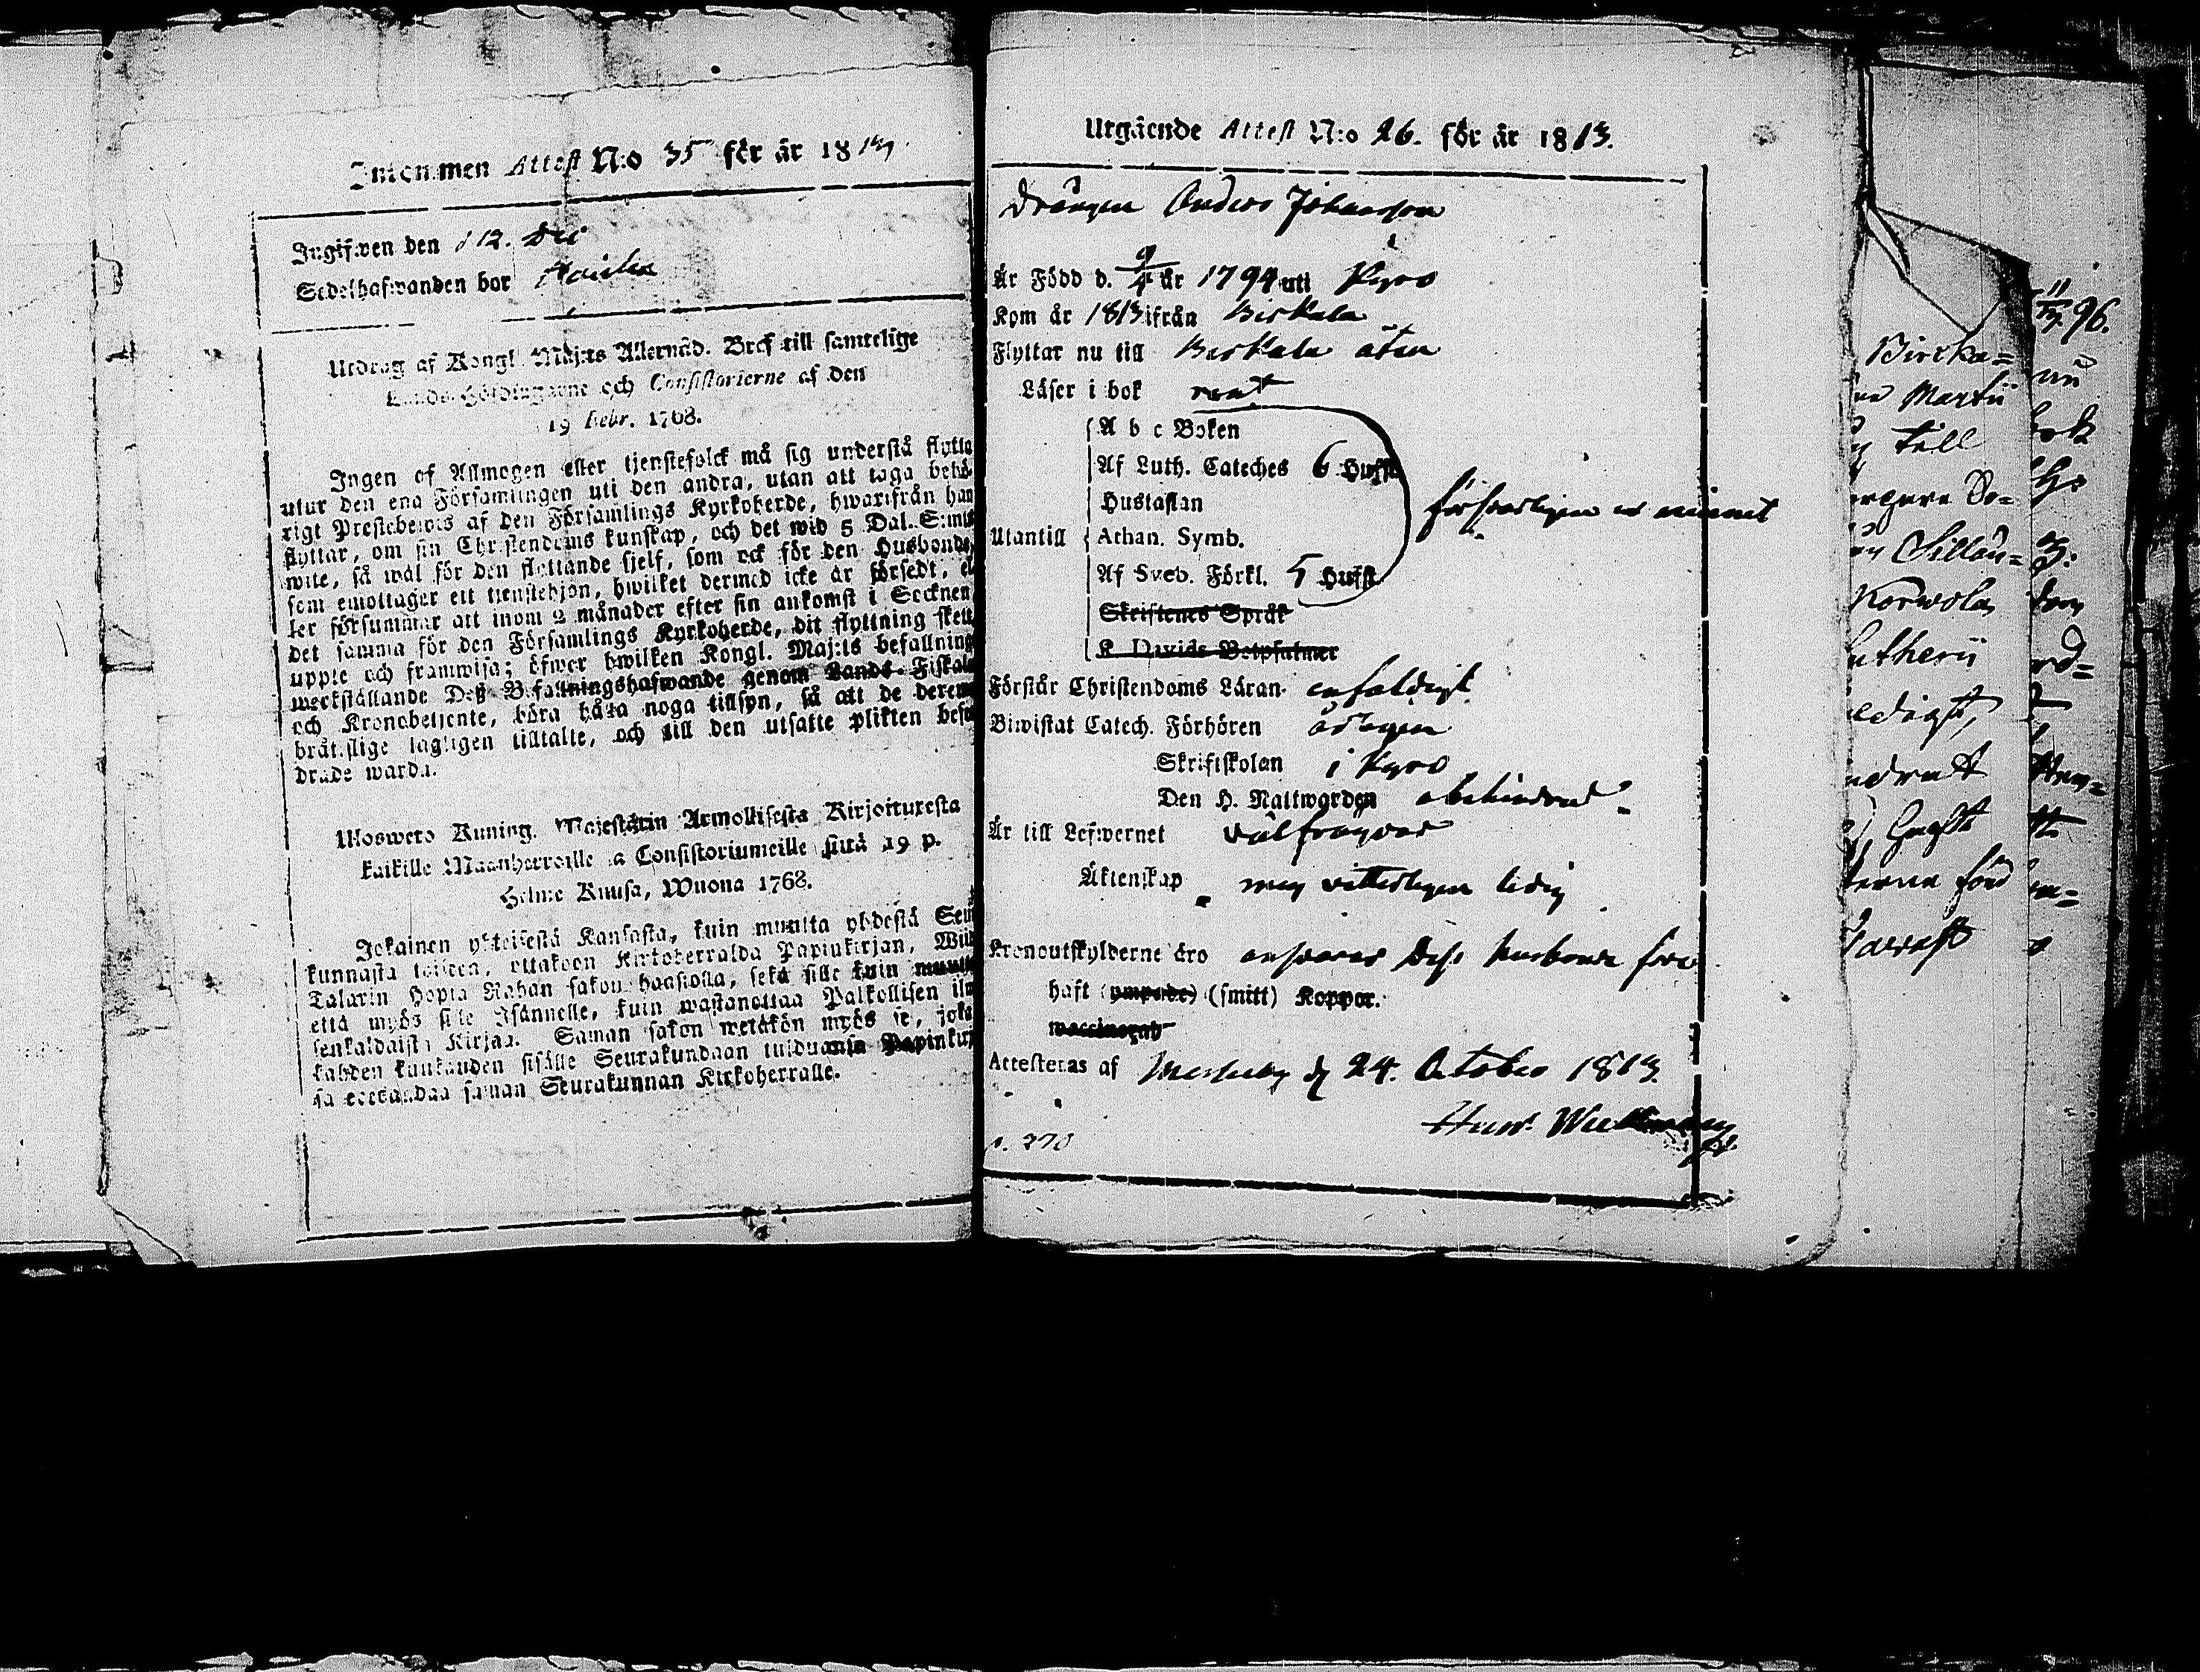 Inkommen Attest N:o 35 för år 1813
Ingifwen den d 12. Dec
Sedelhafwanden bor
Utdrag af Kongl. Maj:ts Allernåd. Bref till samtelige
Lands-Höfdingarne och Consistorierne af den
19 Febr. 1768.
Ingen af Allmogen eller tjenstefolck må sig understå flytta
utur den ena Församlingen uti den andra, utan att taga behö-
rigt Prestebewis af den Församlings Kyrkoherde, hwarifrån han
flyttar, om sin Christendoms kunskap, och det wid 5 Dal. S:mt
wite, så wäl för den flyttande sjelf, som ock för den Husbonde,
som emottager ett tjenstehjon, hwilket dermed icke är försedt, el-
ler försummar att inom 2 månader efter sin ankomst i Socknen
det samma för den Församlings Kyrkoherde, dit flyttning skett
uppte och framwisa; öfwer hwilken Kongl. Maj:ts befallning
werkställande Deß Befallningshafwande genom Lands-Fiskale
och Kronobetjente, böra hålla noga tillsyn, så att de deremot
bråtslige lagligen tilltalte, och till den utsatte plikten befor-
drade warda.
Ulosweto Kuning. Majestätin Armollisesta Kirjoituxesta
kaikille Maanherroille ja Consistoriumeille siitä 19 p.
Helme Kuusa, Wuona 1768.
Jokainen yhteisestä Kansasta, kuin muutta yhdestä Seu-
kunnasta toiseen, ottakoon Kirkoherralda Papinkirjan, Wii
Talarin Hopia Rahan sakon haastolla, sekä sille kuin muutt
että myös sille Isännelle, kuin wastanottaa Palkollisen ilm
senkaldaista Kirjaa. Saman sakon wetäkön myös se, joka
kahden kuukauden sisälle Seurakundaan tulduansa Papinkirj
sa edeskandaa saman Seurakunnan Kirkoherralle.
Utgående Attest N:o 26. för år 1813.
Drängen Anders Johansson
Är Född d. 9/4 år 1794 uti Kyro
Kom år 1813 ifrån Birkala
Flyttar nu till Birkala åter
Läser i bok rent
A b c Boken
Af Luth. Cateches 6 Hufst
Hustaflan
försvarligen ur minnet
Utantill Athan. Symb.
Af Sveb. Förkl. 5 Hufst
Skriftenes Språk
K. Davids Botpsalmer
Förstår Christendoms Läran enfaldigt
Biwistat Catech. Förhören årligen
Skriftskolan i Kyro
Den H. Nattwarden obehindrad
Är till Lefwernet välfrägdad
Äktenskap mig vitterligen ledig
Kronoutskylderne äro ansvarar dess husbonde före
haft (ympade) (smitt) Koppor.
waccinerats
Attesteras af d 24. October 1813.
p. 270
11/3 96.
Bircka=
Martii
till
Korwola,
utherii